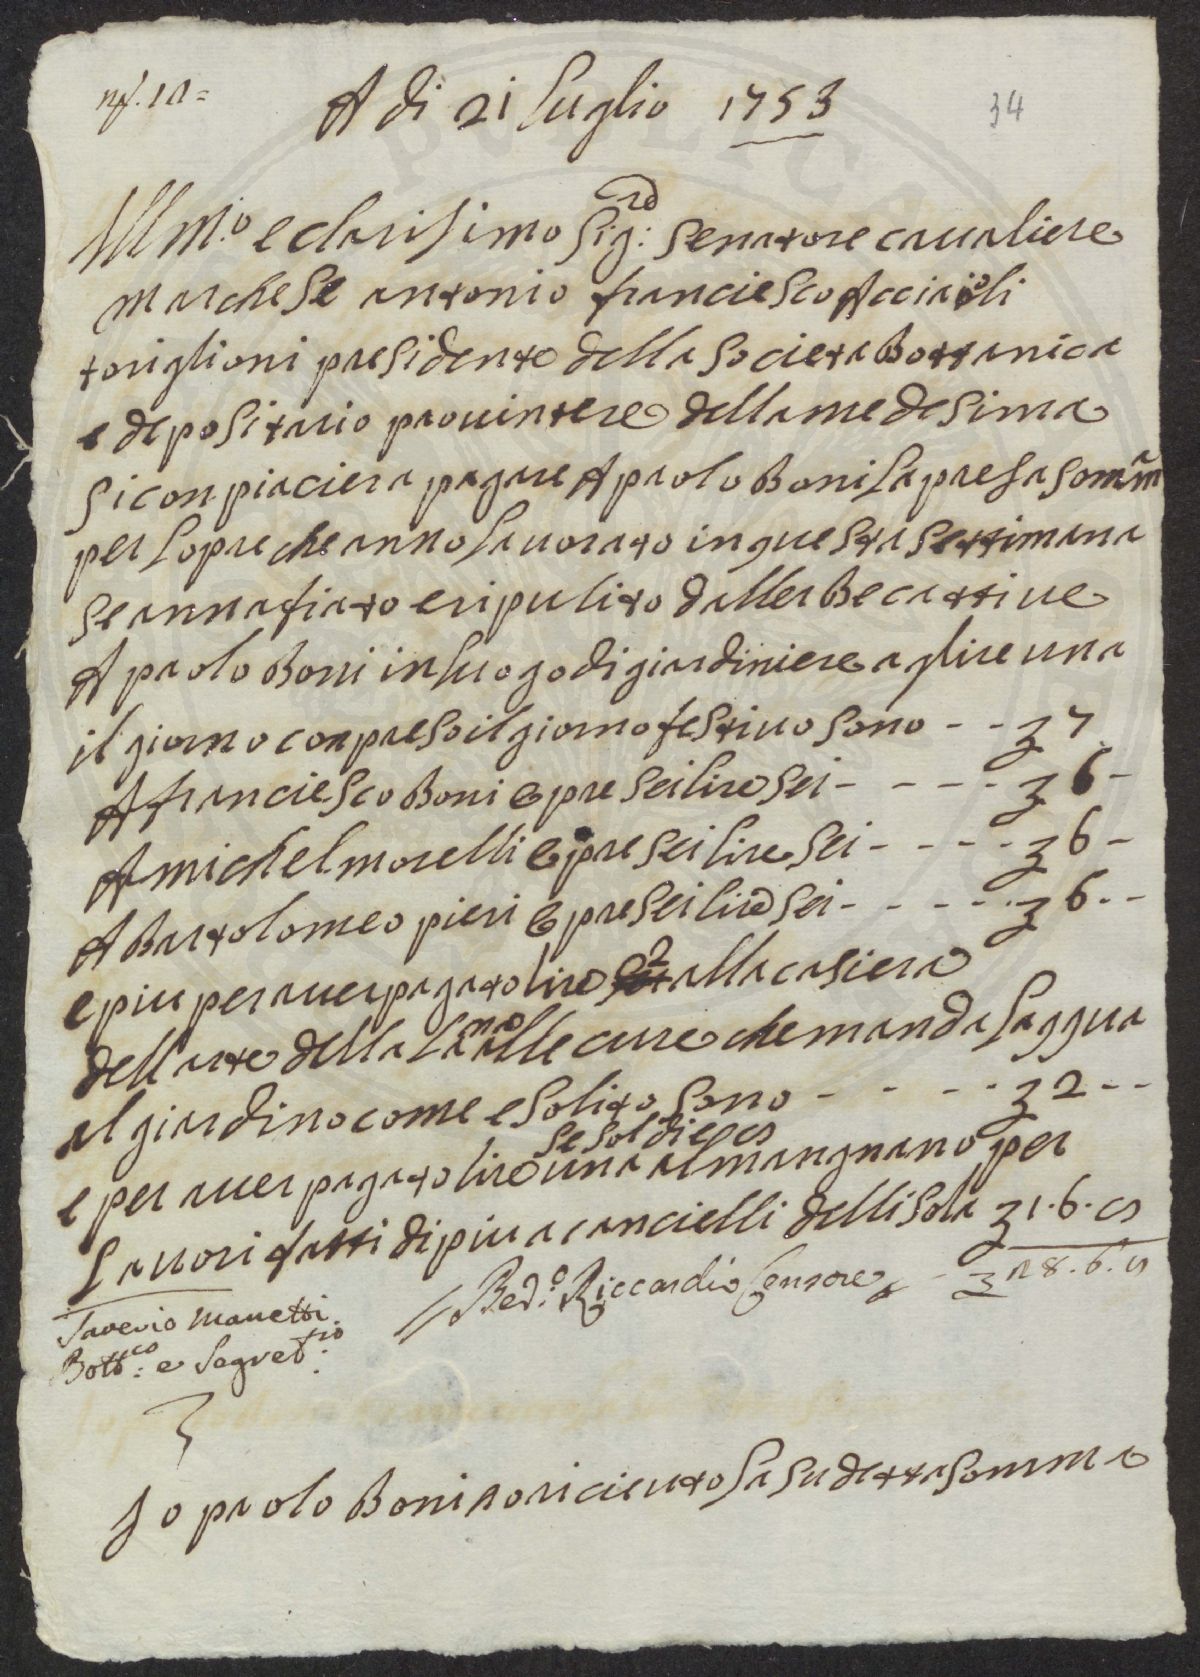 A di 21 Luglio 1753
34
Ill.mo e clarisimo Sig:re Senatore caualiere
marchese antonio franciesco Acciaioli
toriglioni presidente della societa Bottanica
e depositario prouintere della medesima
si conpiaciera pagare A paolo Boni la presa somma
per lopre che anno lauorato in questa settimana
se annafiato e ripulito dallerbe cattiue
A paolo Boni in luogo di giardiniere a lire una
il giorno conpreso il giorno festiuo sono - - 7
A franciesco Boni opre sei lire sei - - - - 6 -
A michel morelli opre sei lire sei - - - - 6 -
A Bartolomeo pieri opre sei lire sei - - - - 6 - -
e piu per auer pagato lire 2 alla casiera
dell arte della lana alle cure che manda laqqua
al giardino come e solito sono - - - - 2 - -
e per auer pagato lire una e soldi 6 al mangnano per
lauori fatti di piu a cancielli dell isola 1.6.
Bed.o Riccardi Censore 28.6.
Saverio Manetti
Bott.co e Segret.rio
Io paolo Boni o riceuto la sudetta somma